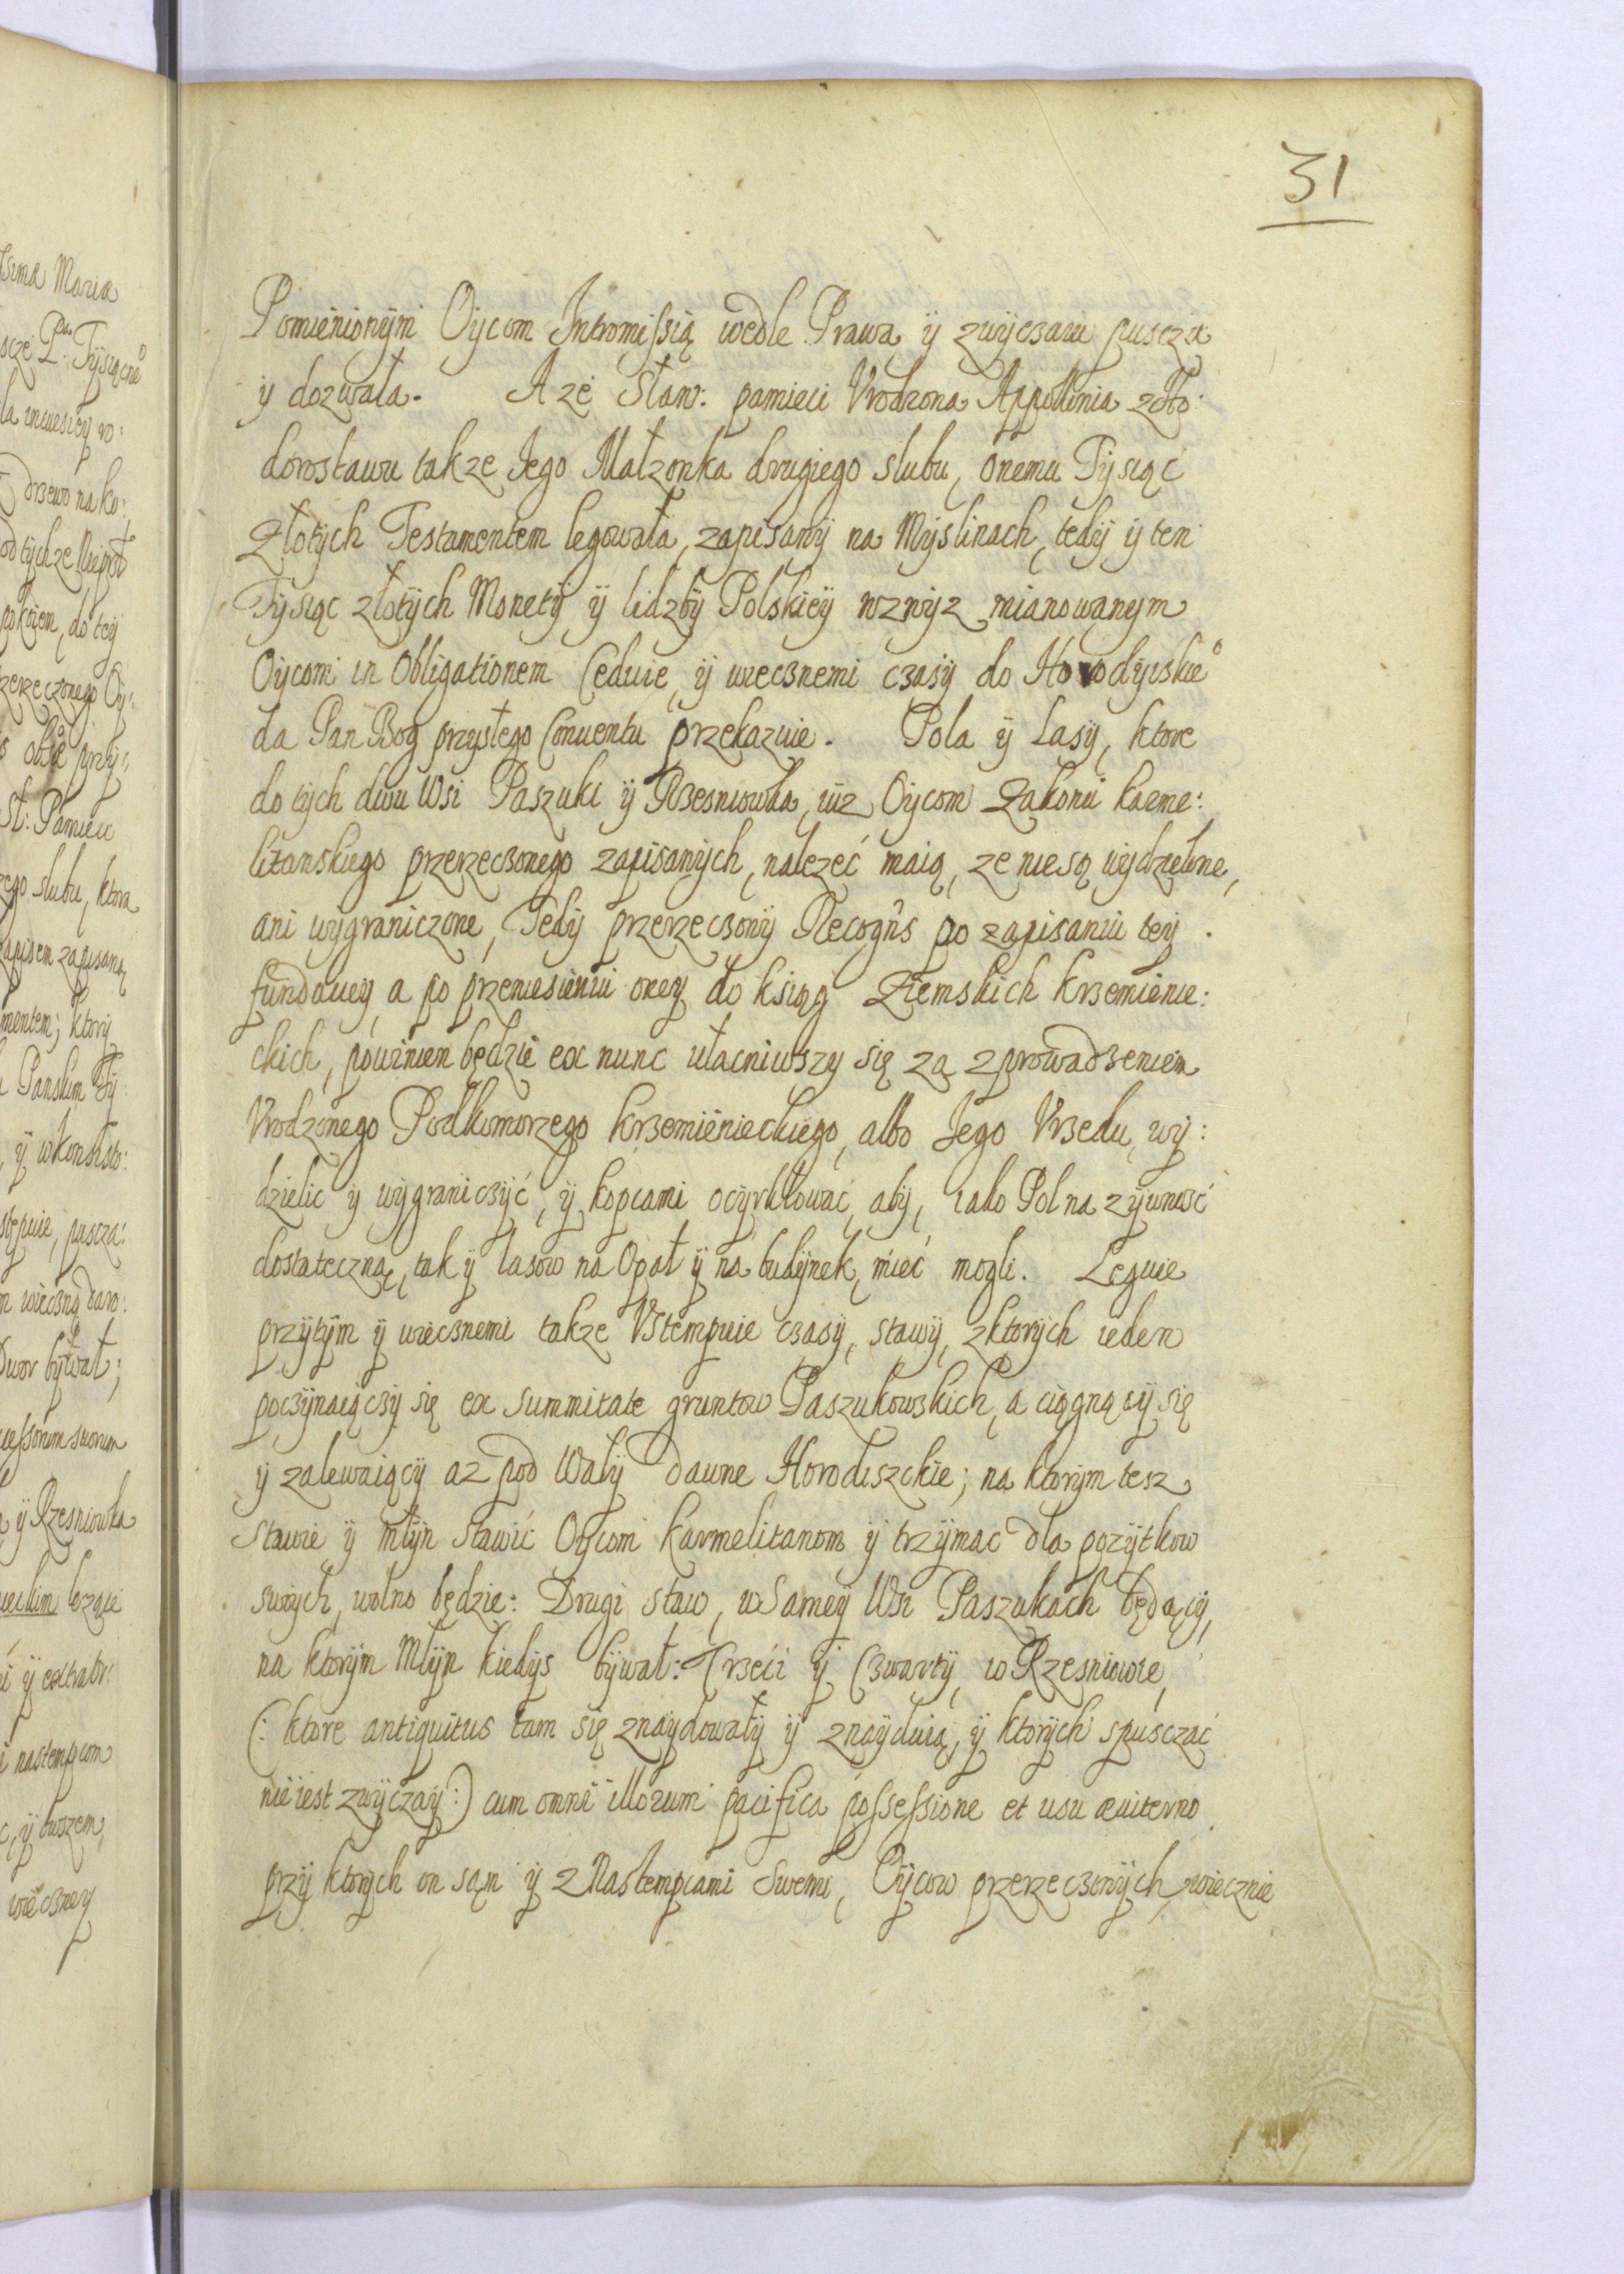 31
Pomienionym Oycom Intromissią wedle Prawa y zwyczaiu puscza
y dozwala. A ze Sław: pamieci Vrodzona Appollinia
dorostawu takze Jego Małzonka drugiego slubu, onemu Tysiąc
złotych Testamentem legowała, zapisany na Myslinach, tedy y ten
Tysiąc złotych Monety y lidzby Polskiey wzwyz mianowanym
Oycom in Obligationem Ceduie, y wiecznemi czasy do Horodyiskie°
da Pan Bog przyszłego Conuentu przekazuie. Pola y Lasy, ktore
do tych dwu Wsi Paszuki y Rzesniowka, iuz Oycom Zakonu karme:
litanskiego przerzeczonego zapisanych, nalezeć maią, ze nie są wydzielone,
ani wygraniczone, Tedy przerzeczony Recogñs po zapisaniu tey
fundaciey, a po przeniesieniu oney do ksiąg Ziemskich krzemienie:
ckich, powinien będzie ex nunc ułacniwszy się za zprowadzeniem
Vrodzonego Podkomorzego krzemienieckiego, albo Jego Vrzedu, wy:
dzielic y wygraniczyć, y kopcami ocyrklować, aby, iako Pol na zywność
dostateczną, tak y lasow na Opał y na budynek, mieć mogli. Leguie
przytym y wiecznemi takze Vstempuie czasy, stawy, z ktorych ieden
poczynaiączy się ex summitate gruntow Paszukowskich, a ciągnący się
y zalewaiący az pod Wały dawne Horodiszckie; na ktorym tesz
stawie y młyn stawić Oycom karmelitanom y trzymac dla pozytkow
swych, wolno będzie: Drugi staw, w Samey Wsi Paszukach będący,
na ktorym Młyn kiedys bywał: Trzeci y Czwarty, w Rzesniowie,
(: ktore antiquitus tam się znaydowały y znayduią, y ktorych spusczać
nie iest zwyczay :) cum omni illorum pacifica possessione et usu æuiterno
przy ktorych on sam y z Nastempcami Swemi, Oycow przerzeczonych, wiecznie